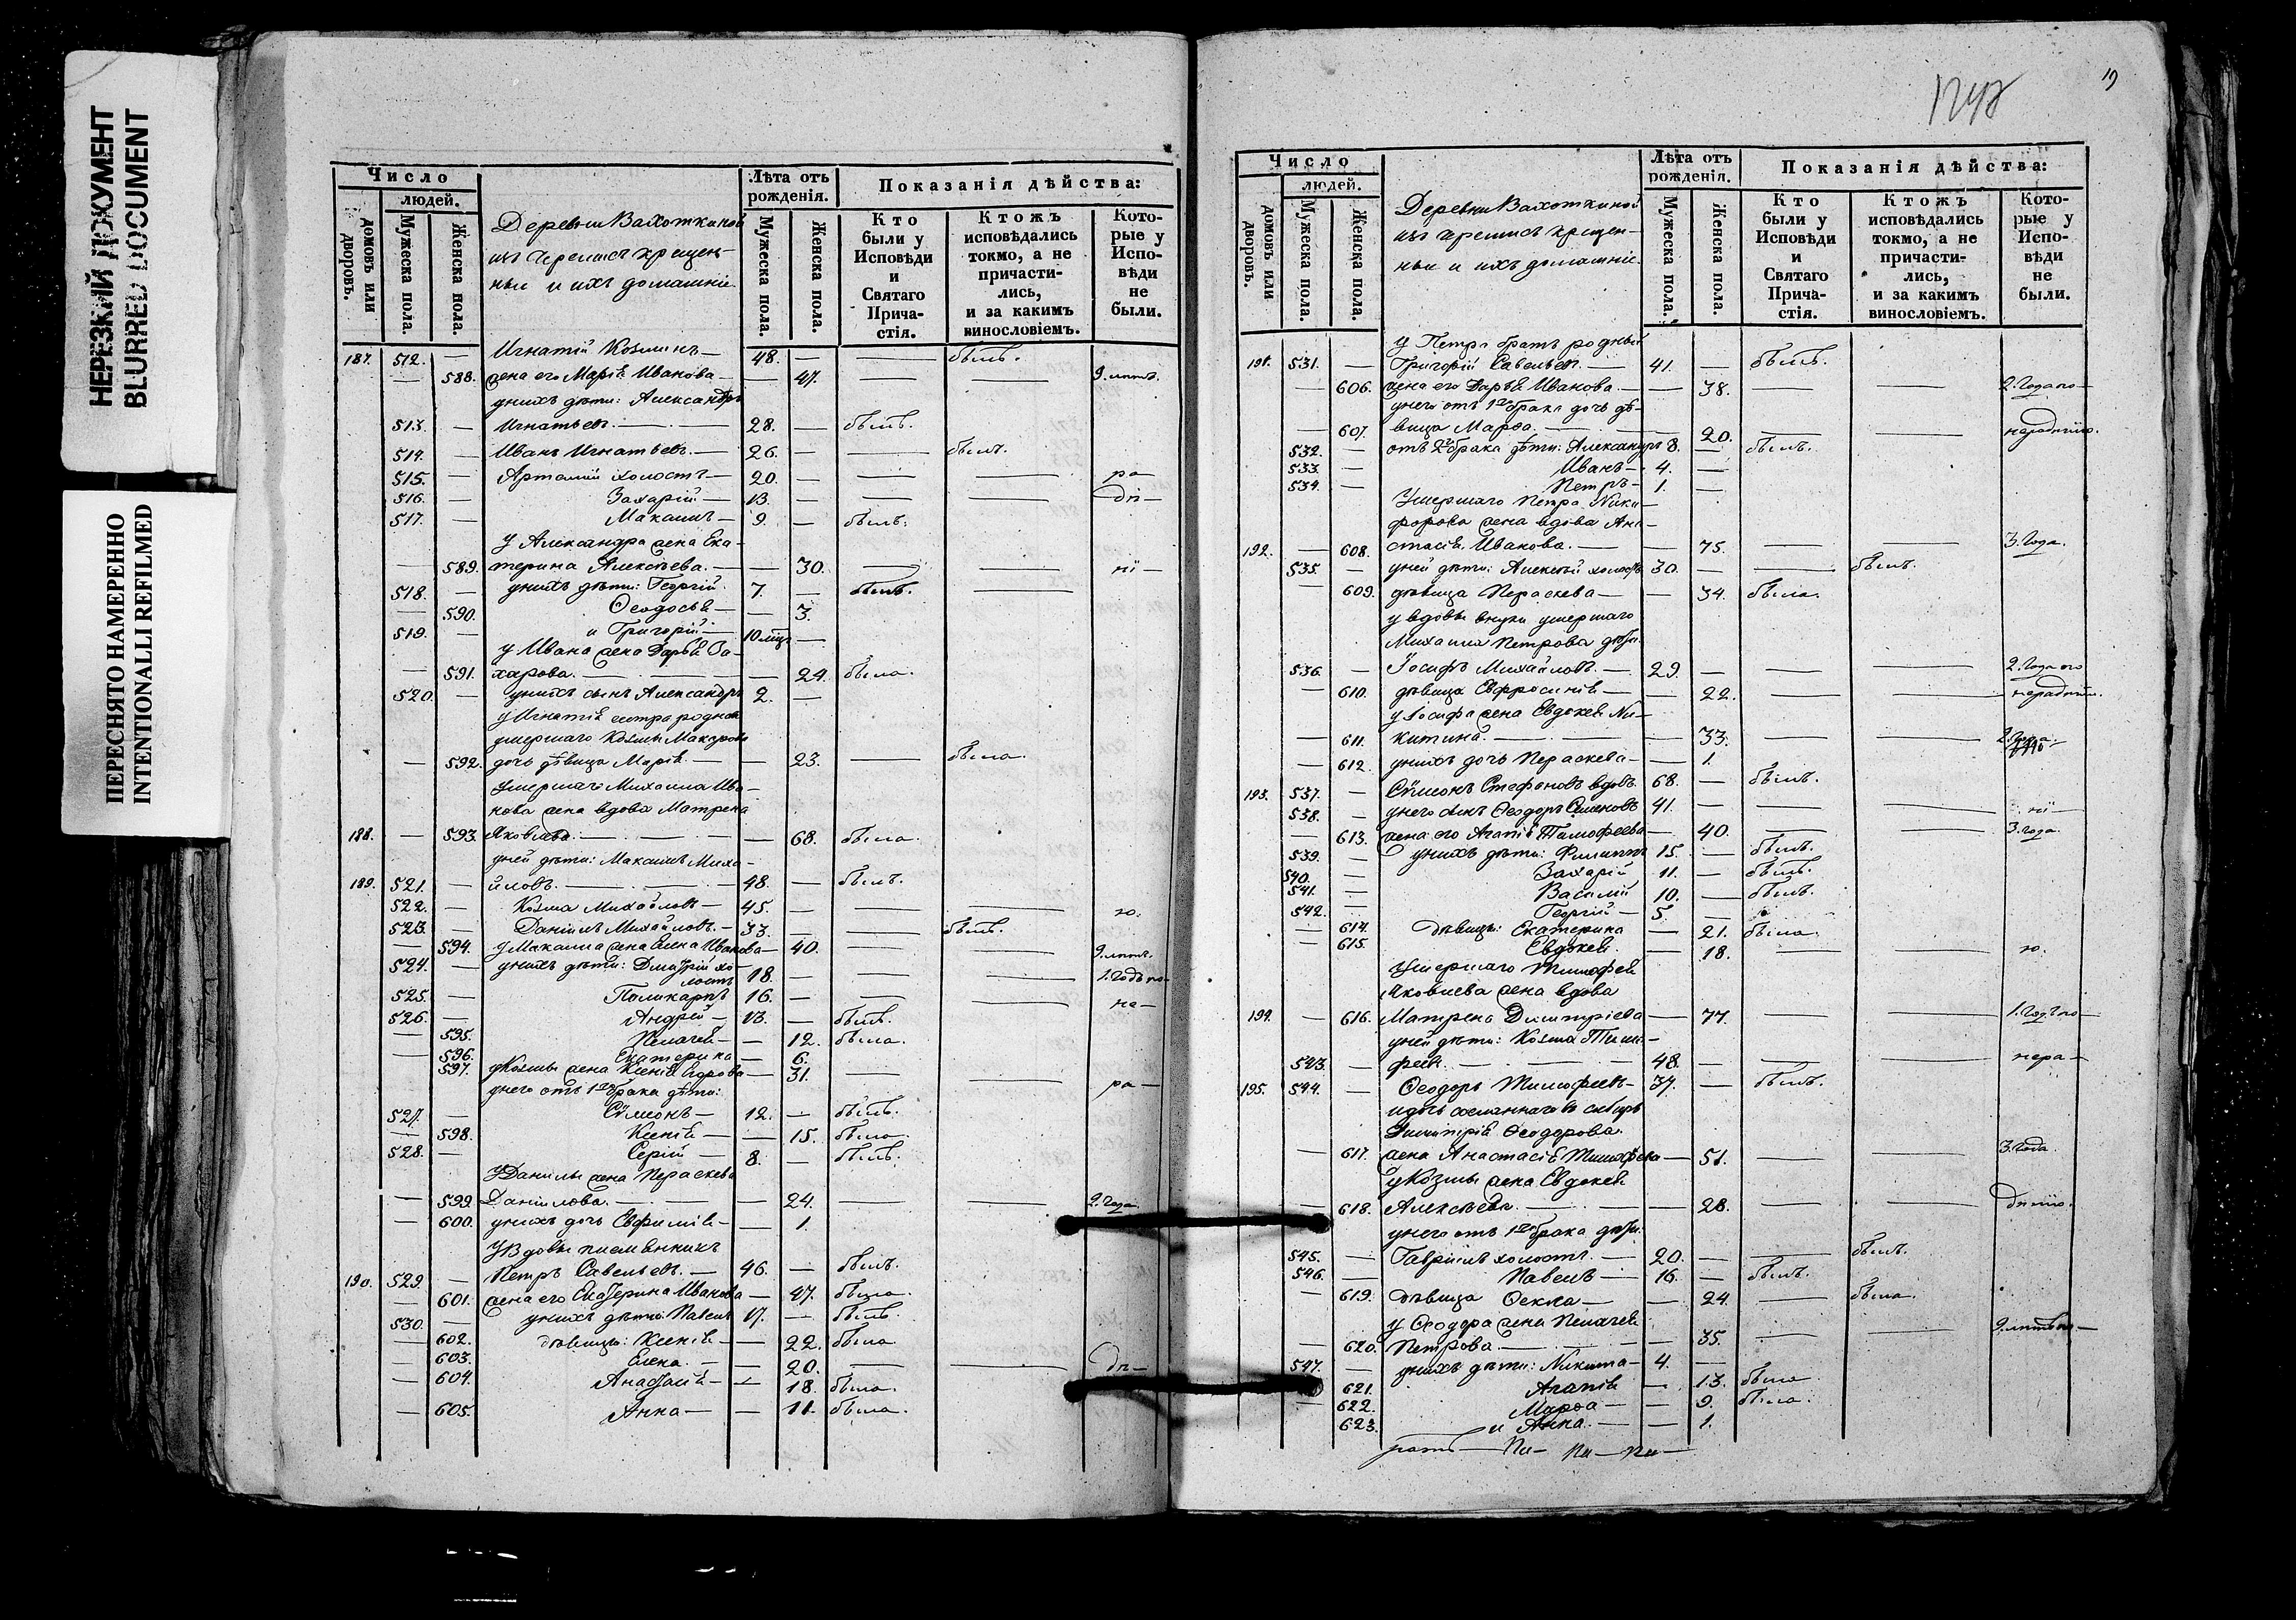 НЕРЕЗКИЙ ДОКУМЕНТ
BLURRED DOCUMENT
ПЕРЕСНЯТО НАМЕРЕННО
INTENTIONALLI REFILMED
Число
людей.
домовъ или дворовъ.
Мужеска пола.
Женска пола.
Деревни Вахоткиной
изъ черемисъ крещен-
ные и ихъ домашніе.
Лѣта отъ рожденія.
Мужеска пола.
Женска пола.
Показанія дѣйства:
Кто были у Исповѣди и Святаго Причастія.
Ктожъ исповѣдались токмо, а не причастились, и за какимъ винословіемъ.
Которые у Исповѣди не были.
187. 512. — Игнатій Козминъ — 48. — — былъ.
— 588. жена его Марія Иванова — — 47. — — 9. лѣтъ.
у нихъ дѣти: Александръ
513. — Игнатьевъ. — 28. — былъ.
514. — Иванъ Игнатьевъ. — 26. — — былъ.
515. — Артамій холостъ — 20. — — — ра—
516. — Захарій — 13. — — — дѣ—
517. — Максимъ — 9. — былъ.
у Александра жена Ека-
— 589. терина Алексѣева. — — 30. — — ні—
518. — у нихъ дѣти: Георгій. 7. — былъ. —
— 590. Ѳеодосья — — 3.
519. — и Григорій — 10 мѣц. —
у Ивана жена Дарья За-
— 591. харова. — — 24. была.
520. — у нихъ сынъ Александръ 2. —
у Игнатія сестра родная
умершаго Козмы Макарова
— 592. дочь дѣвица Марія. — — 23. — была.
Умершаго Михаила Ива-
нова жена вдова Матрена
188. — 593. Яковлева. — — 68. была.
у ней дѣти: Максимъ Миха-
189. 521. — йловъ. — 48. — былъ.
522. — Козма Михайловъ — 45. — — — ю.
523. — Даніилъ Михайловъ. — 33. — — былъ.
— 594. у Максима жена Елена Иванова — 40. — — 9. лѣтъ.
524. — у нихъ дѣти: Дмитрій хо-
лостъ 18. — — — 1. годъ по—
525. — Поликарпъ 16. — — — не—
526. — Андрей — 13. — былъ.
— 595. Пелагея — — 12. была.
— 596. Екатерина — 6.
597. у Козмы жена Ксенія Егорова — 31. — — ра—
у него отъ 1го брака дѣти:
527. — Сѵмеонъ — 12. — былъ.
— 598. Ксенія — — 15. была.
528. — Сергій — 8. — былъ.
У Данилы жена Параскева
— 599. Данилова. — — 24. — — 2. года
— 600. у нихъ дочь Евфимія — — 1.
У вдовы племянникъ
190. 529. — Петръ Савельевъ. — 46. — былъ.
— 601. жена его Екатерина Иванова — 47. была.
530. — у нихъ дѣти: Павелъ 17. — былъ.
— 602. дѣвицы: Ксенія — — 22. была
— 603. Елена. — 20. — — дѣ—
— 604. Анастасія — — 18. была.
— 605. Анна — — 11. была.
19
Число
людей.
домовъ или дворовъ.
Мужеска пола.
Женска пола.
Деревни Вахоткиной
изъ черемисъ крещен-
ные и ихъ домашніе.
Лѣта отъ рожденія.
Мужеска пола.
Женска пола.
Показанія дѣйства:
Кто были у Исповѣди и Святаго Причастія.
Ктожъ исповѣдались токмо, а не причастились, и за какимъ винословіемъ.
Которые у Исповѣди не были.
у Петра братъ родный
191. 531. — Григорій Савельевъ. — 41. — былъ.
— 606. жена его Дарья Иванова. — — 38. — — 2. года по—
у него отъ 1го брака дочь дѣ-
— 607. вица Марѳа. — — 20. — — нерадѣнію.
532. — отъ 2го брака дѣти: Александръ 8. — былъ.
533. — Иванъ — 4. —
534. — Петръ — 1. —
Умершаго Петра Ники-
форова жена вдова Ана-
192. — 608. стасія Иванова. — — 75. — — 3. года.
535. — у ней дѣти: Алексѣй холостъ 30. — — былъ.
— 609. дѣвица Параскева — — 34. была.
у вдовы внуки умершаго
Михаила Петрова дѣти.
536. — Іосифъ Михайловъ. — 29. — — — 2. года по
— 610. дѣвица Евфросинія — — 22. — — нерадѣнію.
у Іосифа жена Евдокея Ни-
— 611. китина. — — 33. — — 2. года.
— 612. у нихъ дочь Параскева — — 1.
193. 537. — Сѵмеонъ Стефановъ вдовъ. 68. — былъ.
538. — у него сынъ Ѳеодоръ Семеновъ 41. — — — ні—
— 613. жена его Агапія Тимофеева — 40. — — 3. года.
539. — у нихъ дѣти: Филиппъ 15. — былъ.
540. — Захарій 11. — былъ.
541. — Василій 10. — былъ.
542. — Георгій — 5. —
— 614. дѣвицы: Екатерина — 21. была.
— 615. Евдокея. — 18. — — ю.
Умершаго Тимофея
Яковлева жена вдова
194. — 616. Матрена Димитріева — — 77. — — 1. годъ по—
у ней дѣти: Козма Тимо-
543. — феевъ. — 48. — — — нера—
195. 544. — Ѳеодоръ Тимофеевъ — 37. — былъ.
сосланнаго въ сибирь
Димитрія Ѳеодорова.
— 617. жена Анастасія Тимофеева — 51. — — 3. года.
у Козмы жена Евдокея
— 618. Алексѣева. — — 28. — — дѣнію.
у него отъ 1го брака дѣти:
545. — Гавріилъ холостъ. — 20. — — былъ.
546. — Павелъ — 16. — былъ.
— 619. дѣвица Ѳекла — — 24. — была.
у Ѳеодора жена Пелагея
— 620. Петрова — — 35. — — 9. лѣтъ по—
547. — у нихъ дѣти: Никита — 4. —
621. Агапія — 13. была
— 622. Марѳа — — 9. была.
623. и Анна. — — 1.